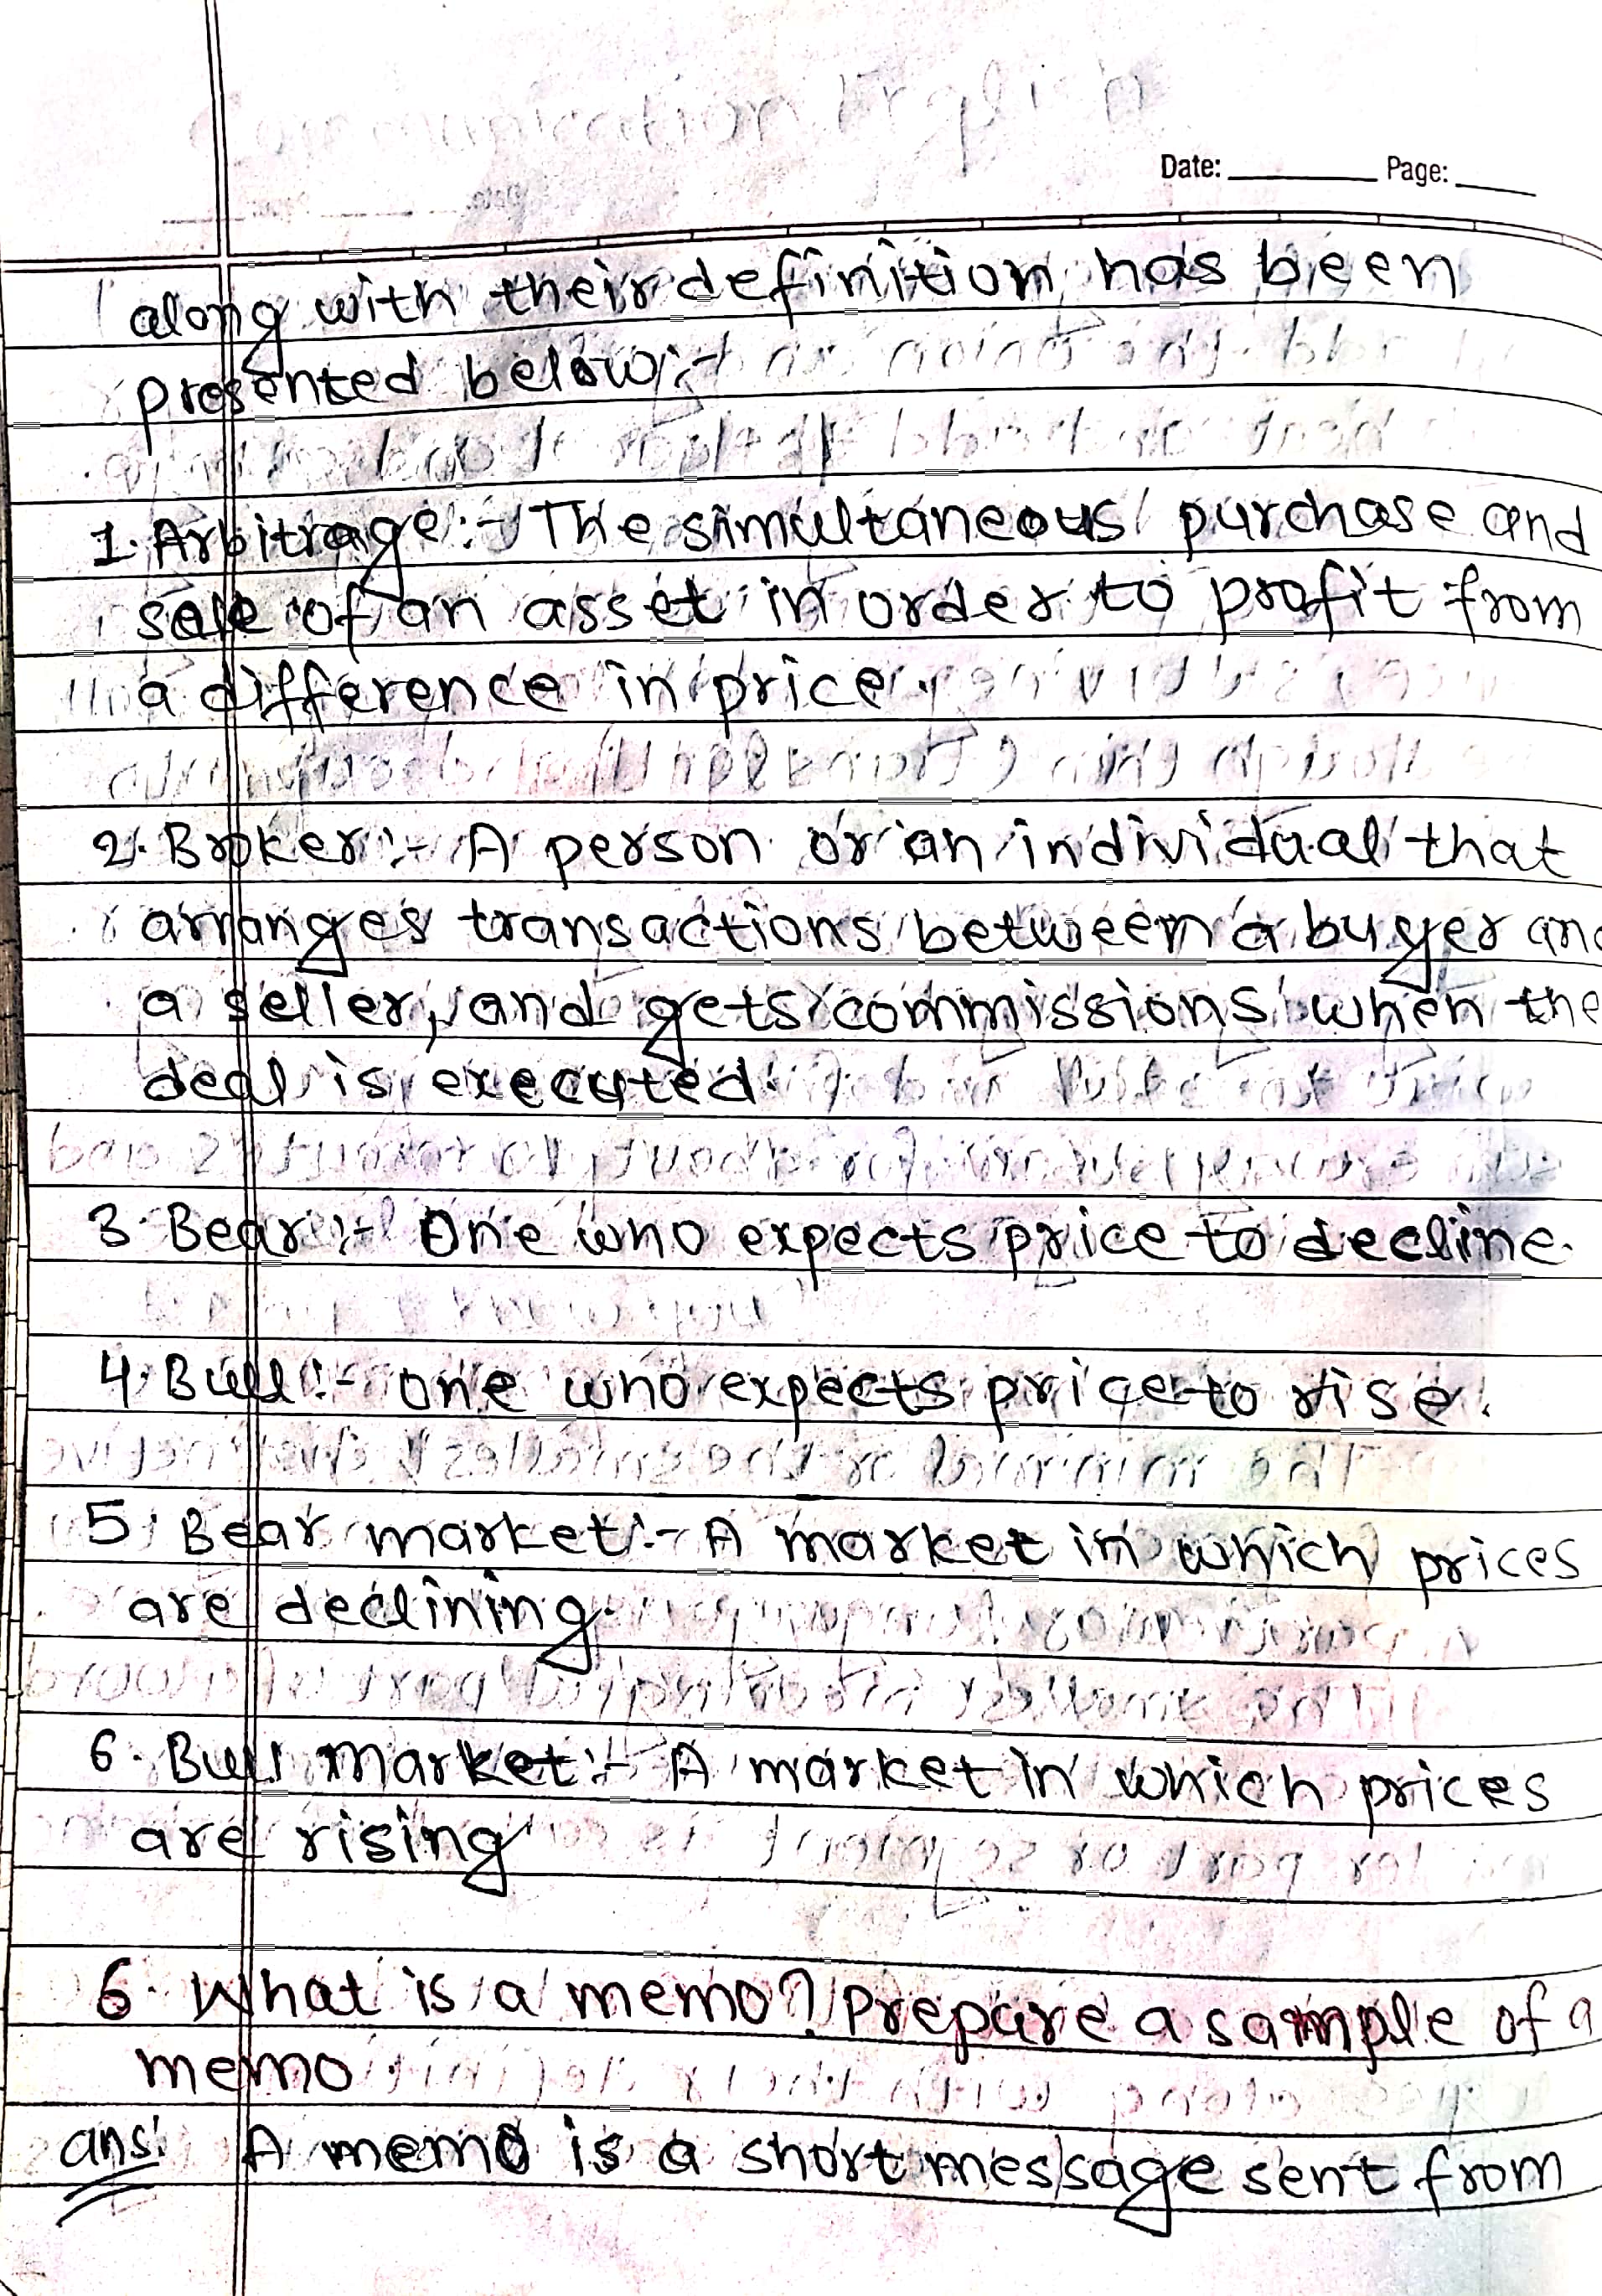 Date: ________ Page: ____
along with their definition has been
presented below:-
1. Arbitrage:- The simultaneous purchase and
sale of an asset in order to profit from
a difference in price.
2. Broker:- A person or an individual that
arranges transactions between a buyer and
a seller, and gets commissions when the
deal is executed.
3. Bear:- One who expects price to decline.
4. Bull:- one who expects price to rise.
5. Bear market:- A market in which prices
are declining.
6. Bull market:- A market in which prices
are rising
6. What is a memo? Prepare a sample of a
memo.
ans: A memo is a short message sent from